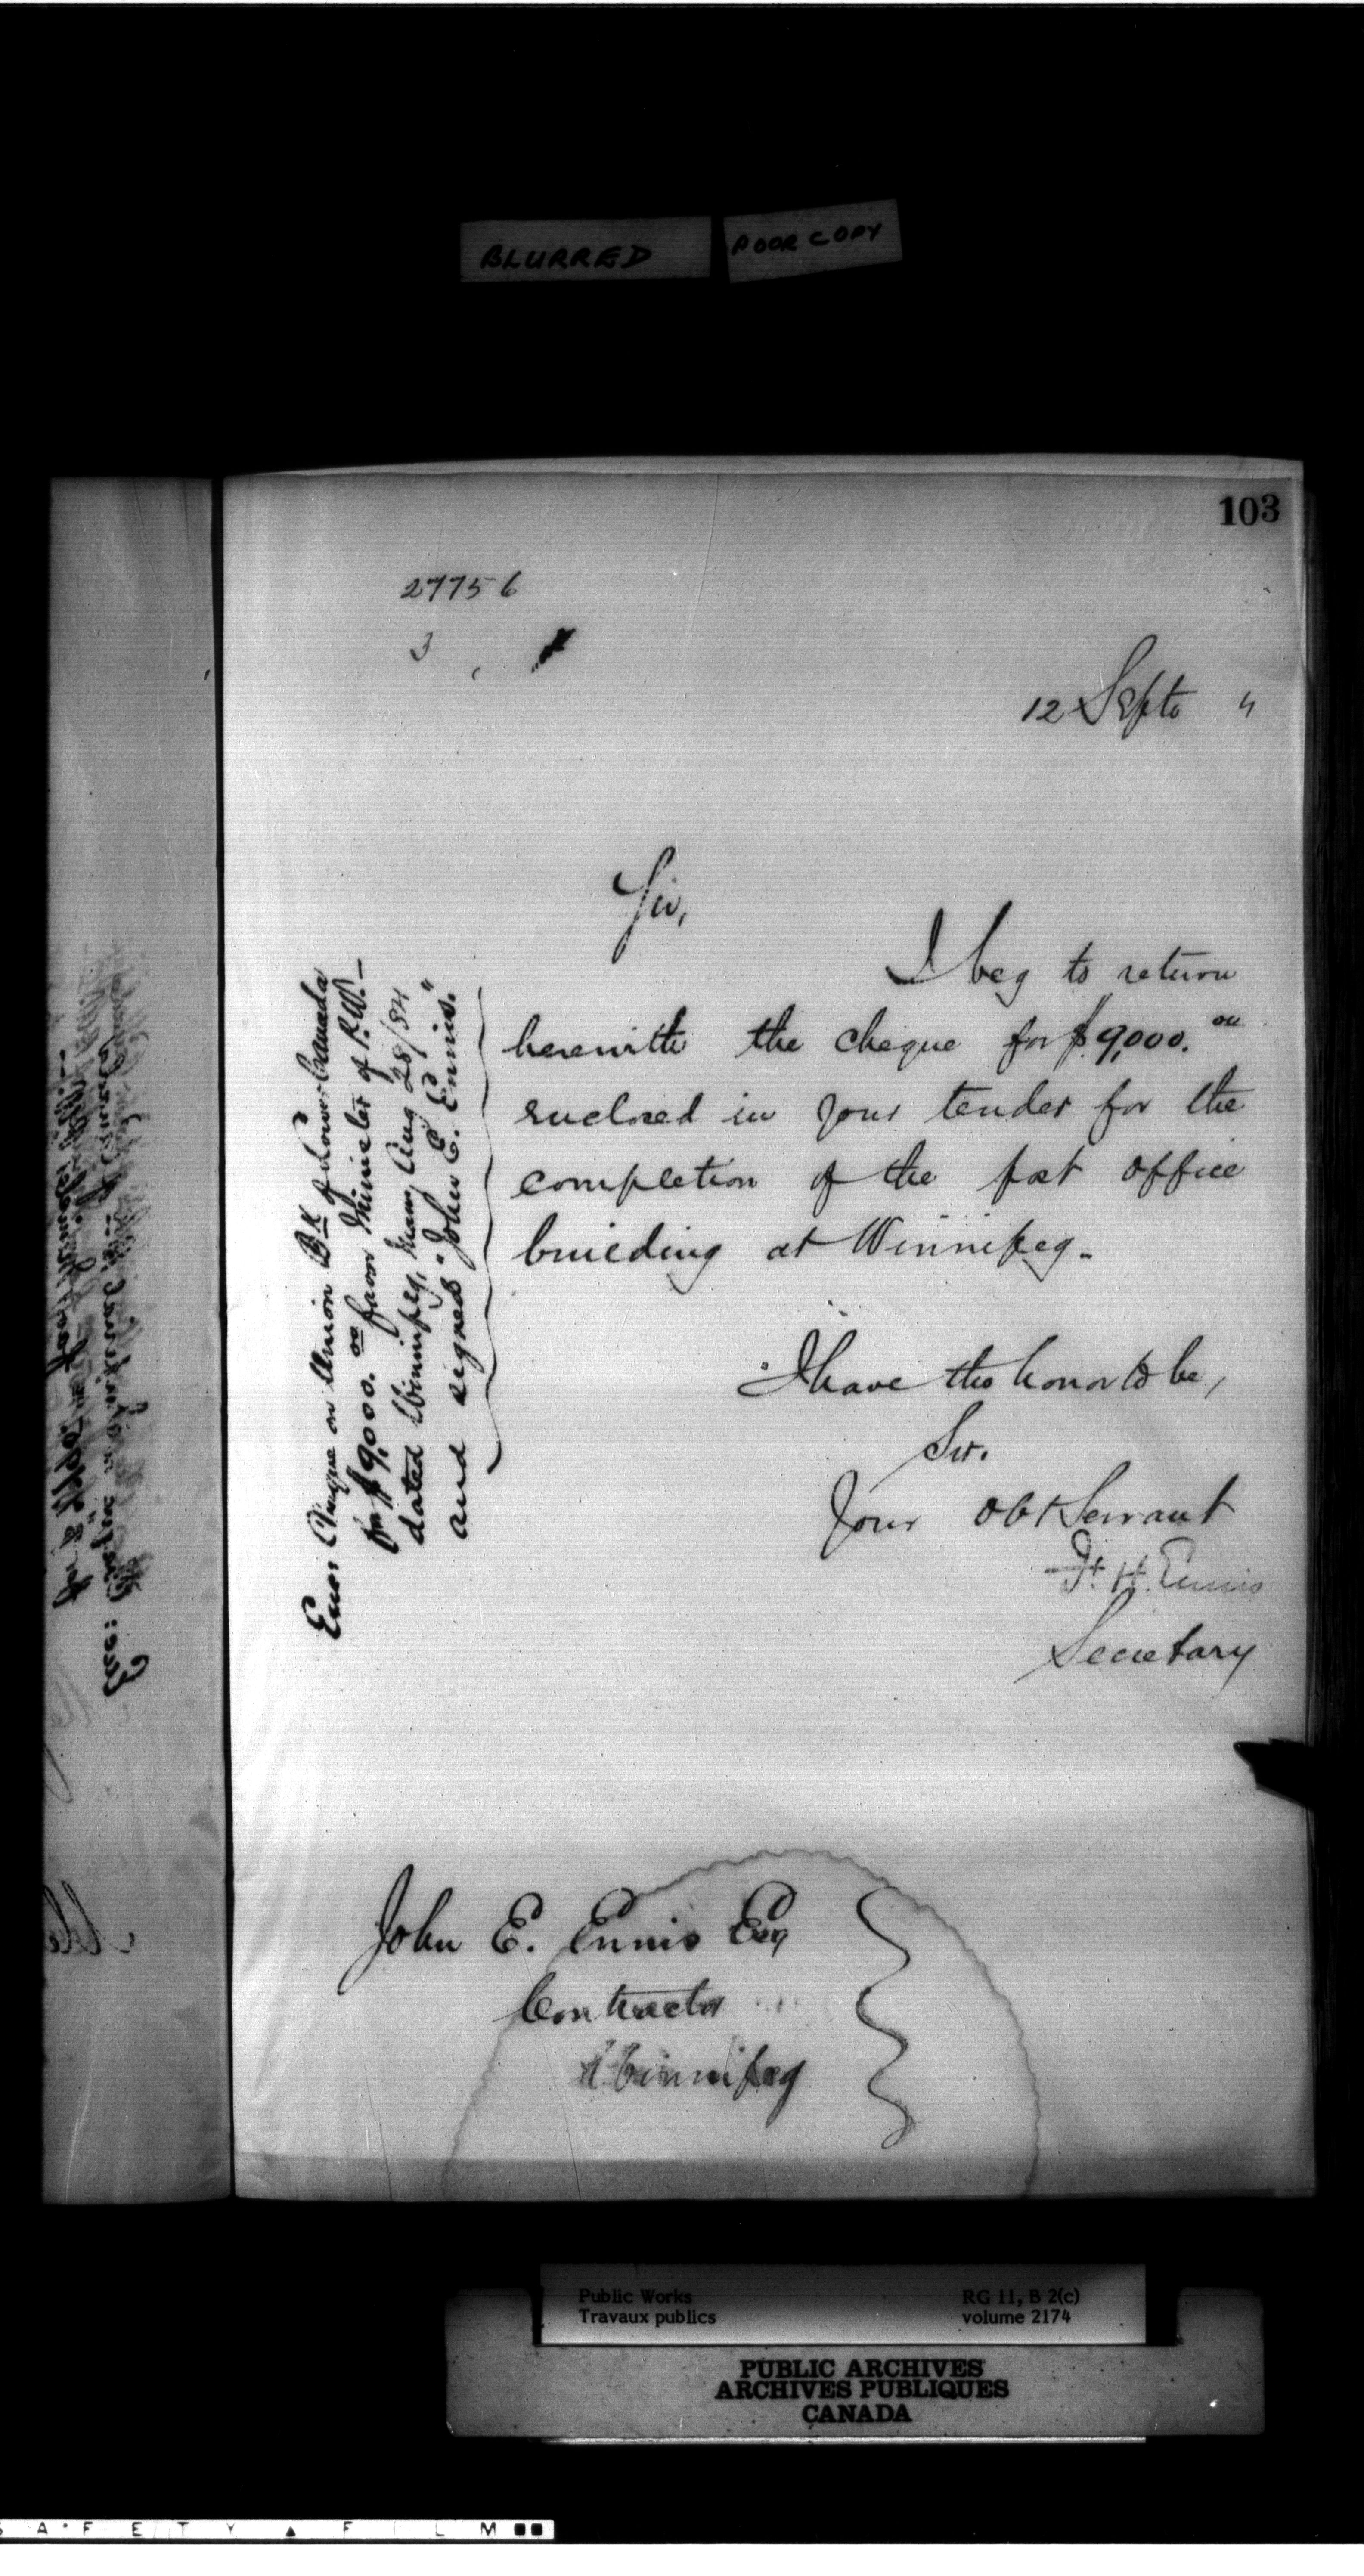 BLURRED POOR COPY
103
27756
3
12 Septr "
Sir,
I beg to return
herewith the cheque for $9,000. 00
enclosed in your tender for the
completion of the post office
building at Winnipeg.
I have the honor to be,
Sir.
Your Obt Servant
F. H. Ennis
Secretary
Encs Cheque on Union Bk of Lower Canada
for $9,000. 00 favor Minister of P.W.—
dated Winnipeg, Man, Aug 28/84
and signed "John E. Ennis."
John E. Ennis Esq
Contractor
Winnipeg
Public Works RG 11, B 2(c)
Travaux publics volume 2174
PUBLIC ARCHIVES
ARCHIVES PUBLIQUES
CANADA
S A F E T Y ▲ F I L M